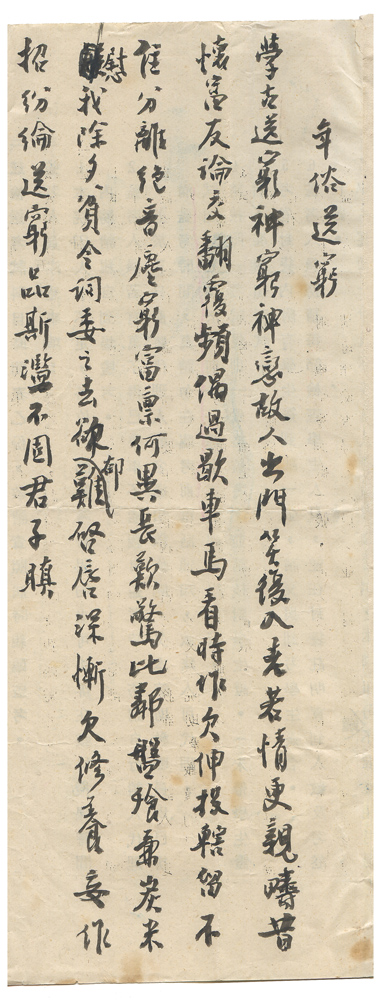 年俗送窮
學古送窮神窮神戀故人出門笑復入若情更親疇昔
懷富友論交翻覆頻偶過歇車馬看時作欠伸投轄留不
住分離絕音塵窮富稟何異長歎驚比鄰盤飧兼炭米
慰我除夕貧令詞委之去欲卻難啓唇深慚欠修養妄作
招紛綸送窮品斯濫不固君子瞋